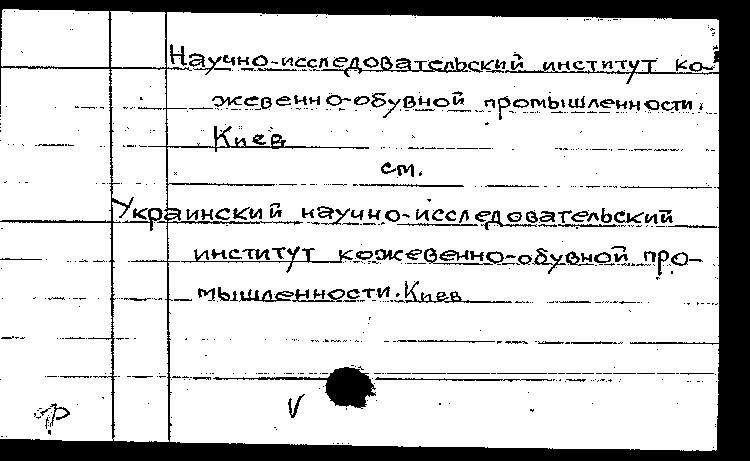 Научно-исследовательский институт ко-
жевенно-обувной промышленности.
Киев
см.
Украинский научно-исследовательский
институт кожевенно-обувной про-
мышленности. Киев
V